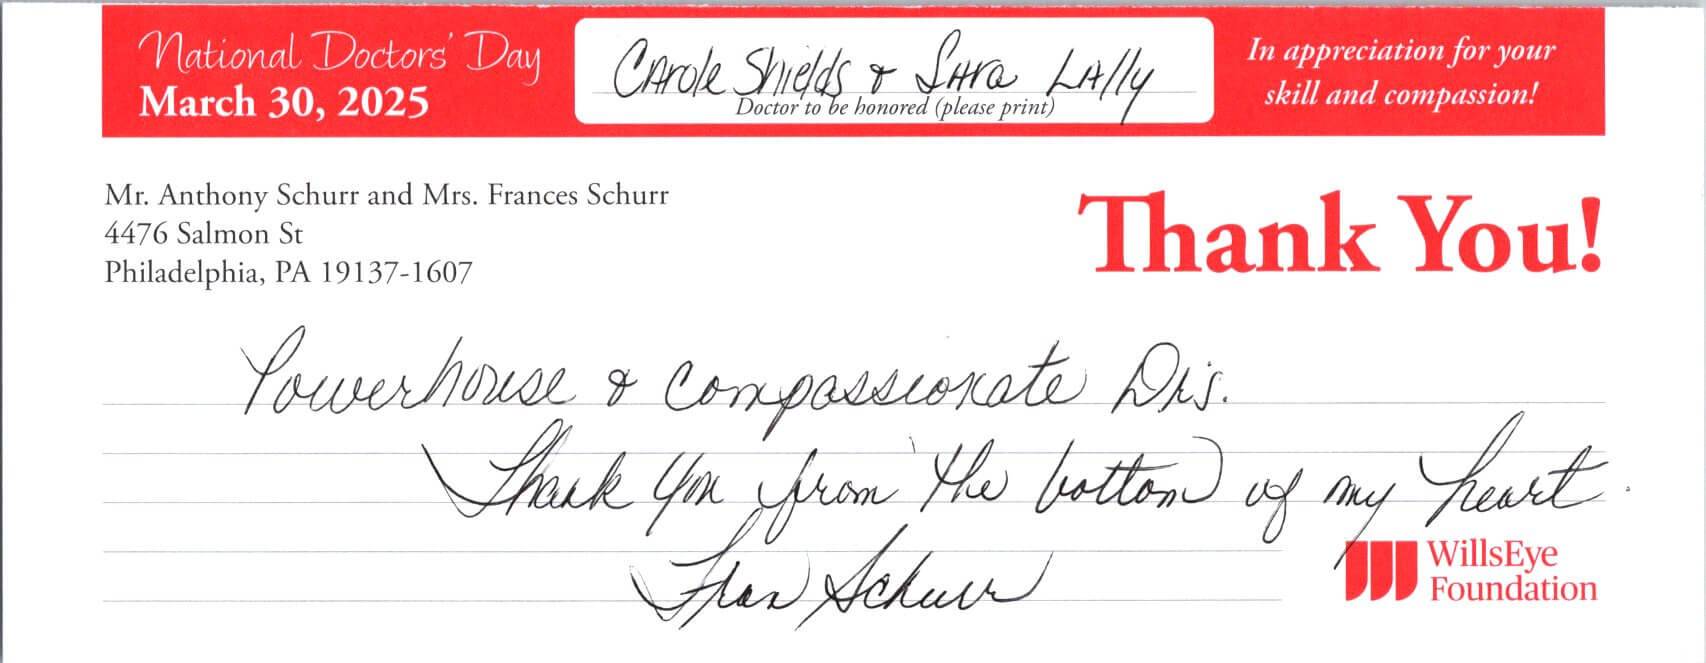 National Doctors' Day
March 30, 2025
Carole Shields & Sara Lally
Doctor to be honored (please print)
In appreciation for your
skill and compassion!
Mr. Anthony Schurr and Mrs. Frances Schurr
4476 Salmon St
Philadelphia, PA 19137-1607
Thank You!
Powerhouse & Compassionate Drs.
Thank you from the bottom of my heart.
Fran Schurr
WillsEye
Foundation